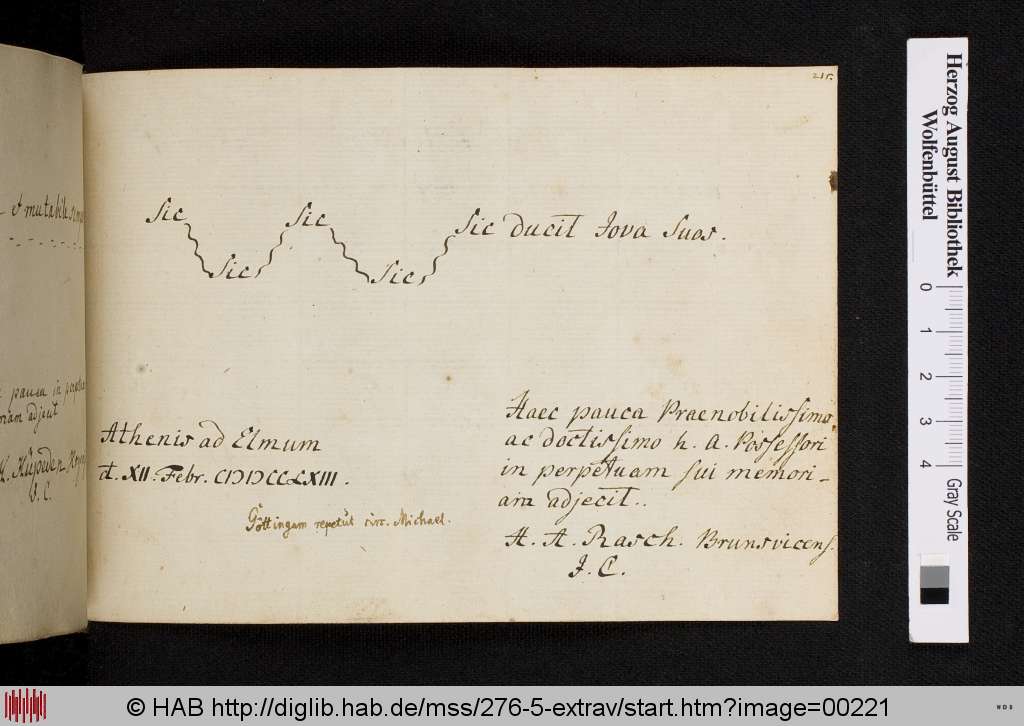 215.
Sic Sic Sic ducit Jova Suos.
Sic Sic
Athenis ad Elmum
d. XII. Febr. CIƆIƆCCLXIII.
Göttingam repetiit circ. Michael.
Haec pauca Praenobilissimo,
ac doctissimo h. A. Possessori
in perpetuam sui memori-
am adjecit..
H. A. Rasch. Brunsvicens.
J. C.
et mutabile semp
pauca in perpetu
oriam adjecit
J. C.
Herzog August Bibliothek
Wolfenbüttel
0 1 2 3 4 Gray Scale
© HAB http://diglib.hab.de/mss/276-5-extrav/start.htm?image=00221
WDB